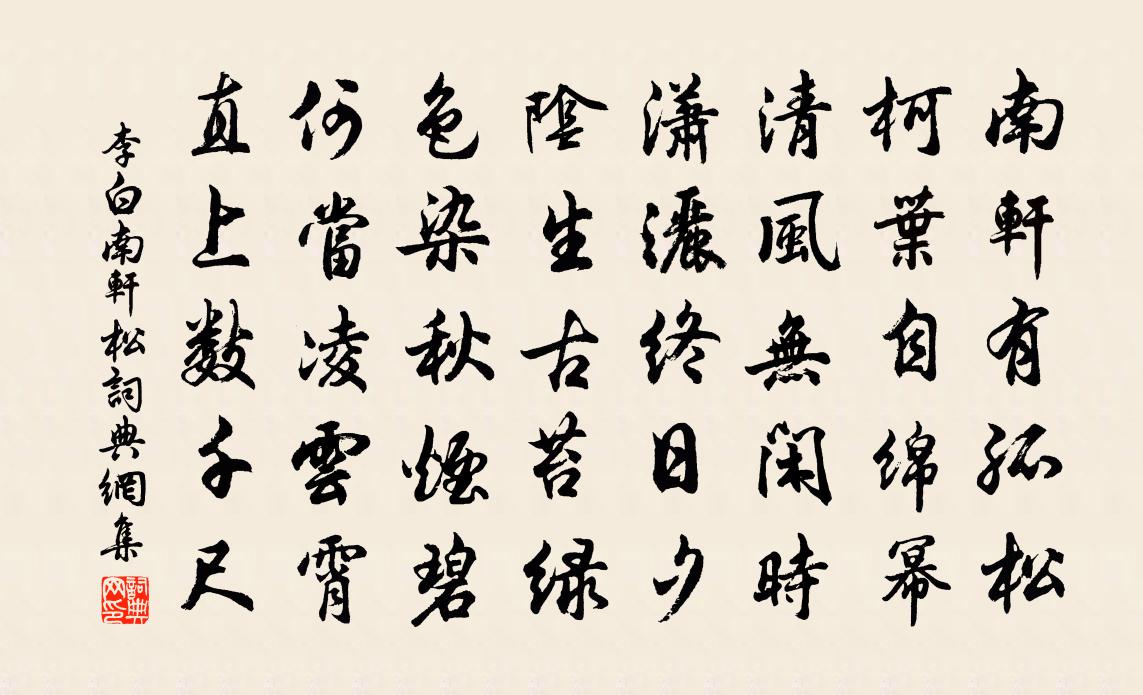 南軒有孤松
柯葉自綿冪
清風無閑時
瀟灑終日夕
陰生古苔綠
色染秋煙碧
何當凌雲霄
直上數千尺
李白南軒松詞典網集
詞典網印